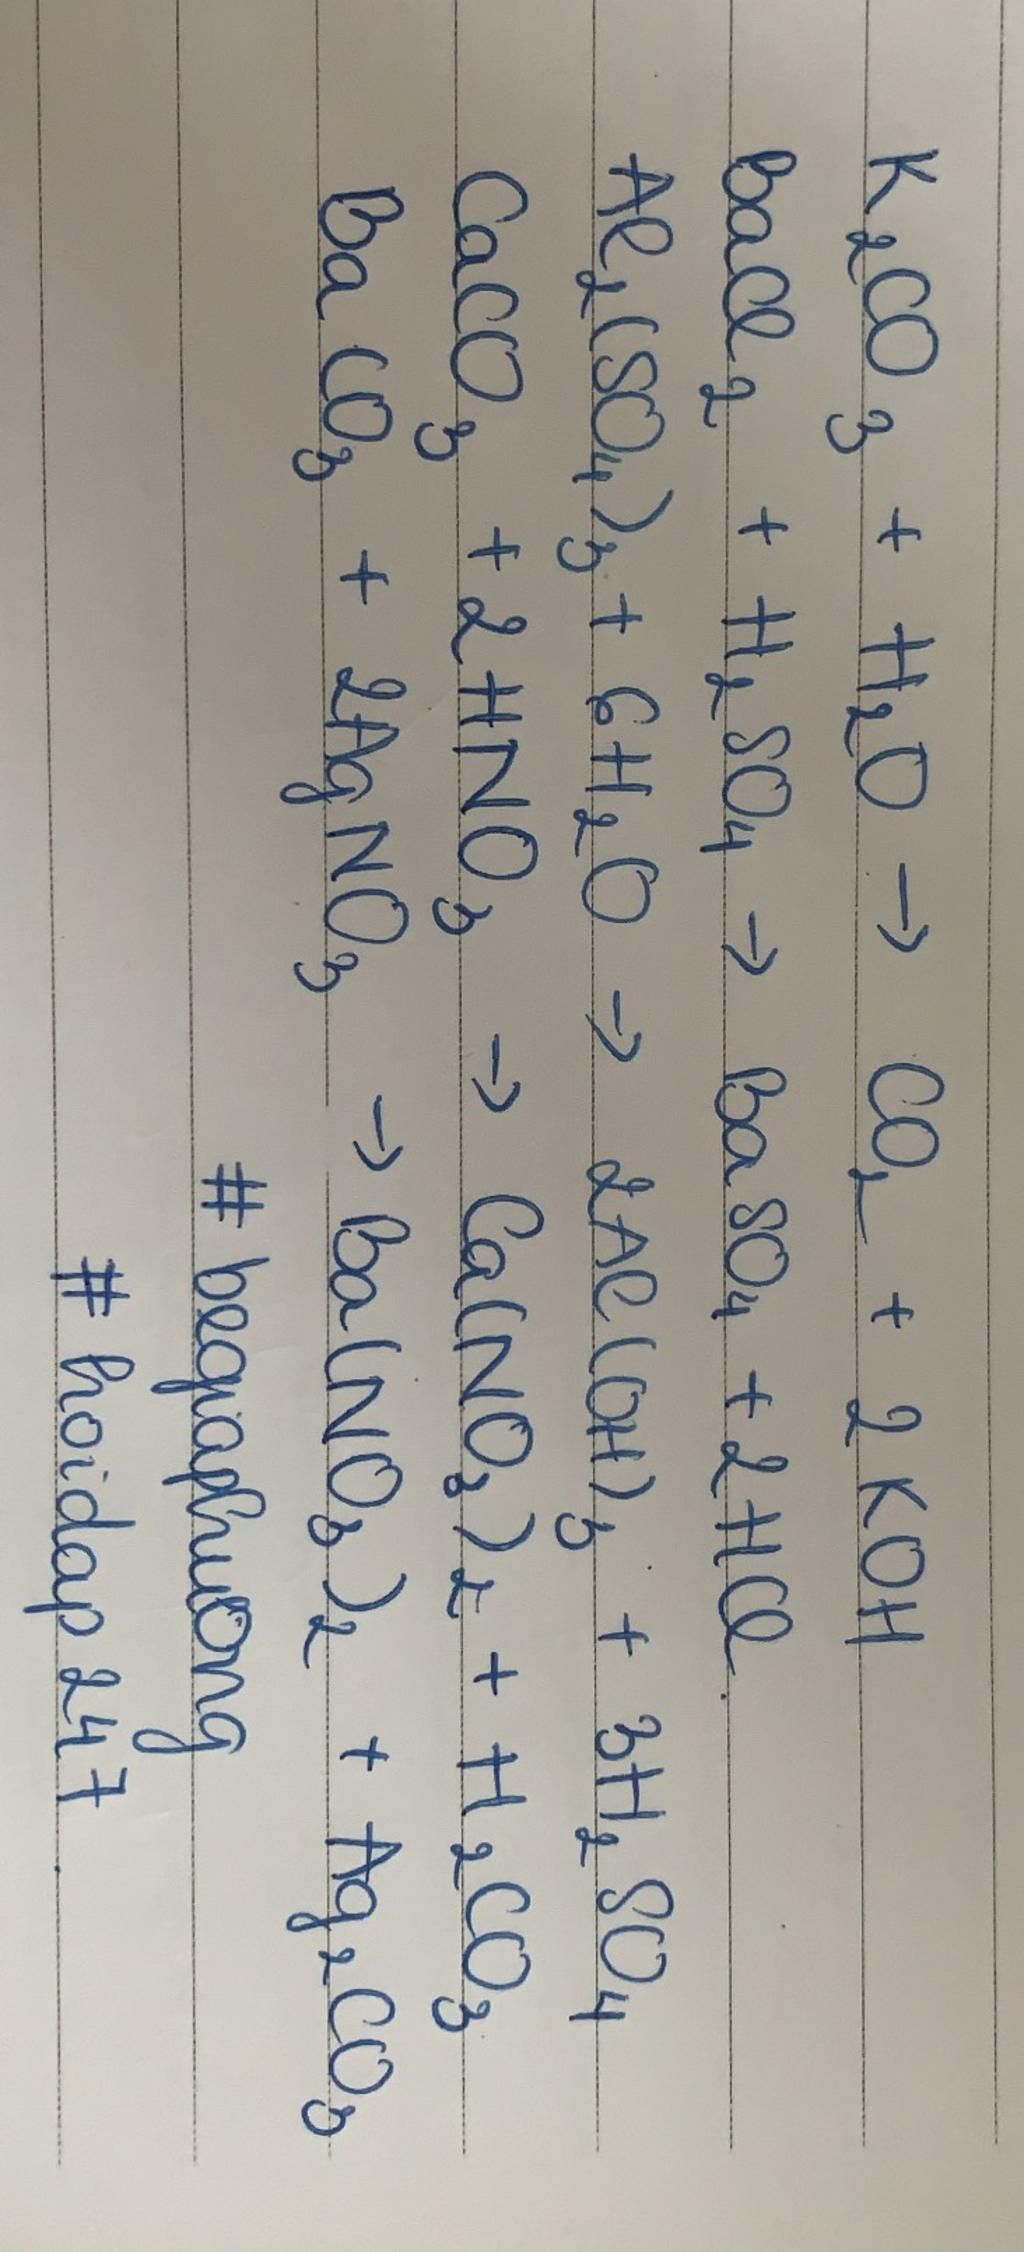 K₂CO₃ + H₂O → CO₂ + 2KOH
BaCl₂ + H₂SO₄ → BaSO₄ + 2HCl.
Al₂(SO₄)₃ + 6H₂O → 2Al(OH)₃ + 3H₂SO₄
CaCO₃ + 2HNO₃ → Ca(NO₃)₂ + H₂CO₃
BaCO₃ + 2AgNO₃ → Ba(NO₃)₂ + Ag₂CO₃
# begiaphuong
# hoidap247.